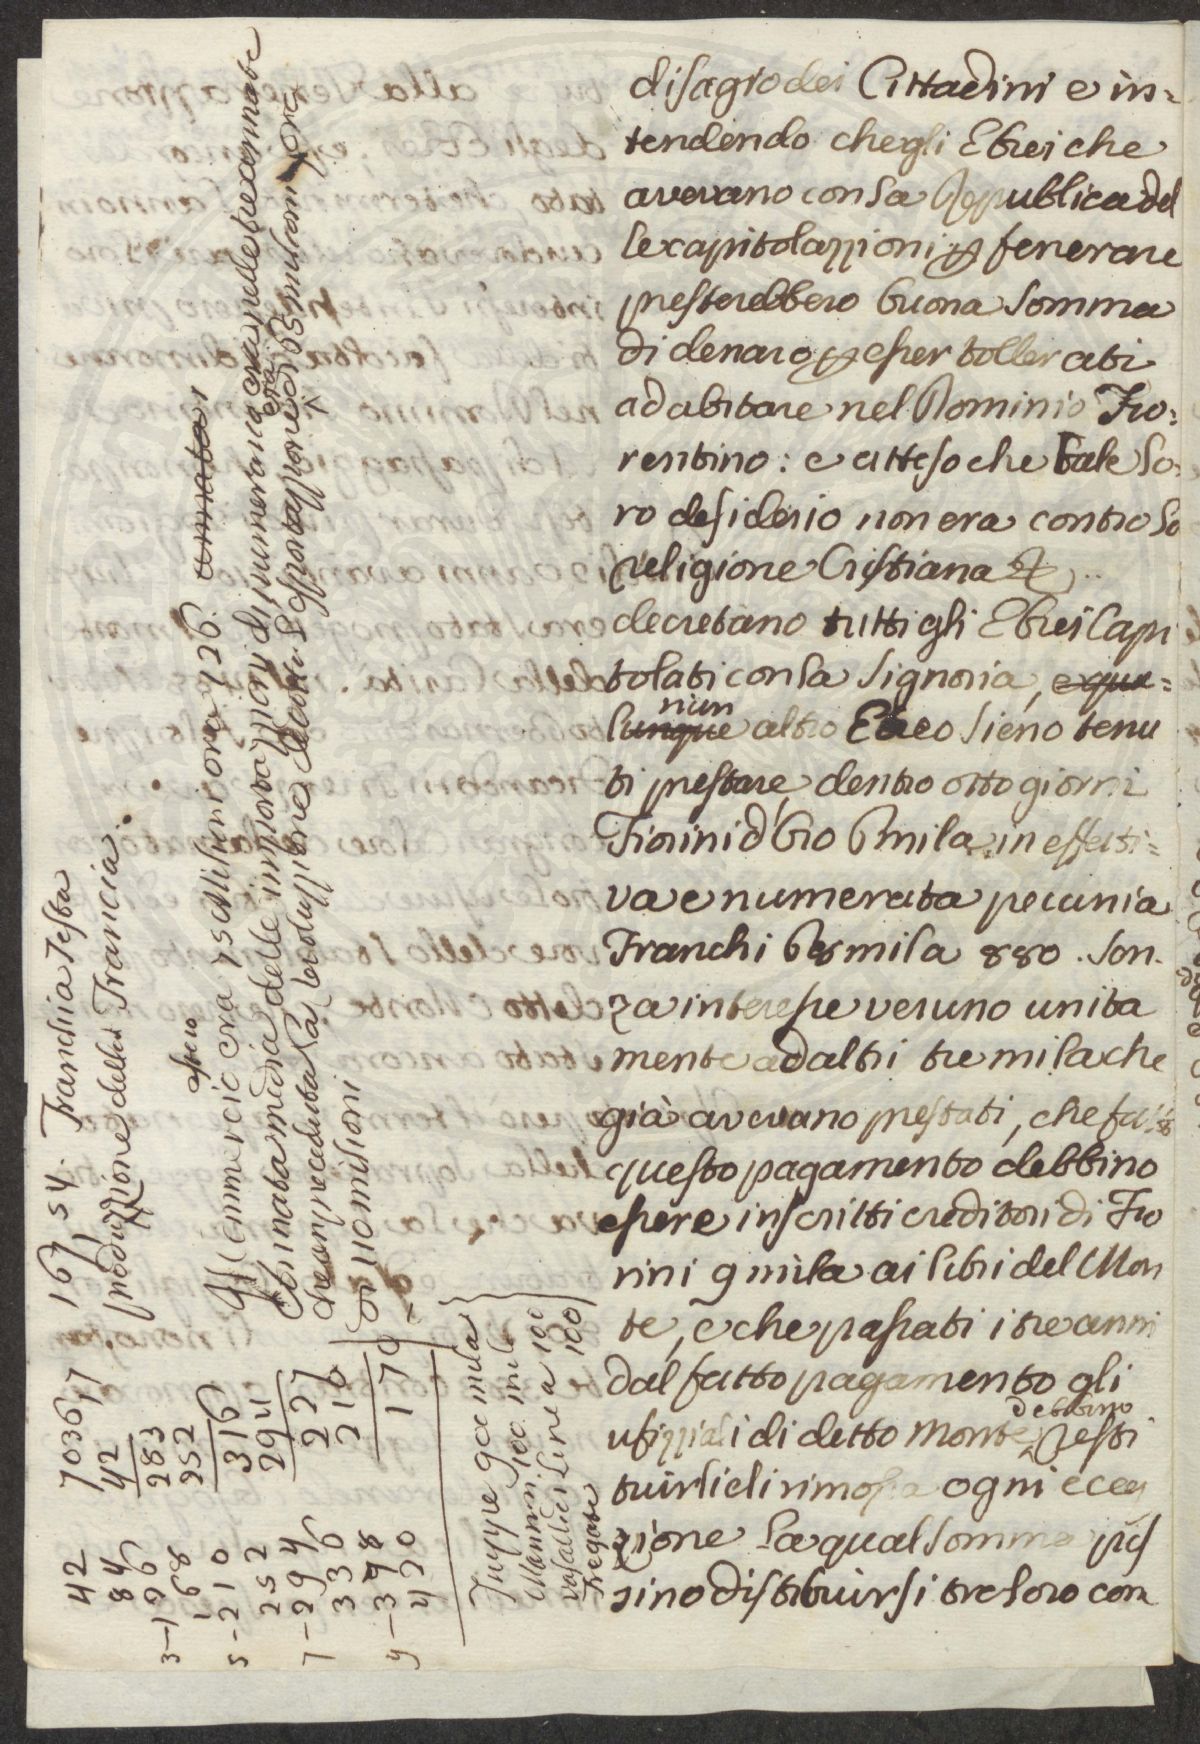 disagio dei Cittadini e in=
tendendo che gli Ebrei che
avevano con la Republica del
le capitolazzioni p fenerare
presterebbero buona somma
di denaro p esser tollerati
ad abitare nel Dominio Fio=
rentino: e atteso che tale lo=
ro desiderio non era contro la
religione Cristiana &
decretano tutti gli Ebrei Capi
tolati con la Signoria, e que=
lunque niun altro Ebreo sieno tenu
ti prestare dentro otto giorni
Fiorini d'Oro 6 mila in effetti=
va e numerata pecunia
Franchi mila 880. sen=
za interesse veruno unita
mente ad altri tre mila che
già avevano prestati, che fatto
questo pagamento debbino
essere inscritti creditori di Fio
rini 9 mila ai libri del Mon
te, e che passati i tre anni
dal fatto pagamento gli
ufizziali di detto Monte debbino resti
tuirli rimossa ogni ecce
zione la qual somma
sino distribuirsi tra loro con
1671 54. Franchia Testa
produzzione della Francia.
Il Commercio era 75 Milioni ora 726. annata
Un'annata media delle importazzioni di numerario era nelle tre annate
che an preceduta la rivoluzzione
di 110 milioni
703617
42
283
252
316
294
227
210
170
42
84
3-126
168
5-210
252
7-294
336
9-378
420
Truppe 900 mila
Marini 100 mila
Vascelli di linea 100
Fregate 100